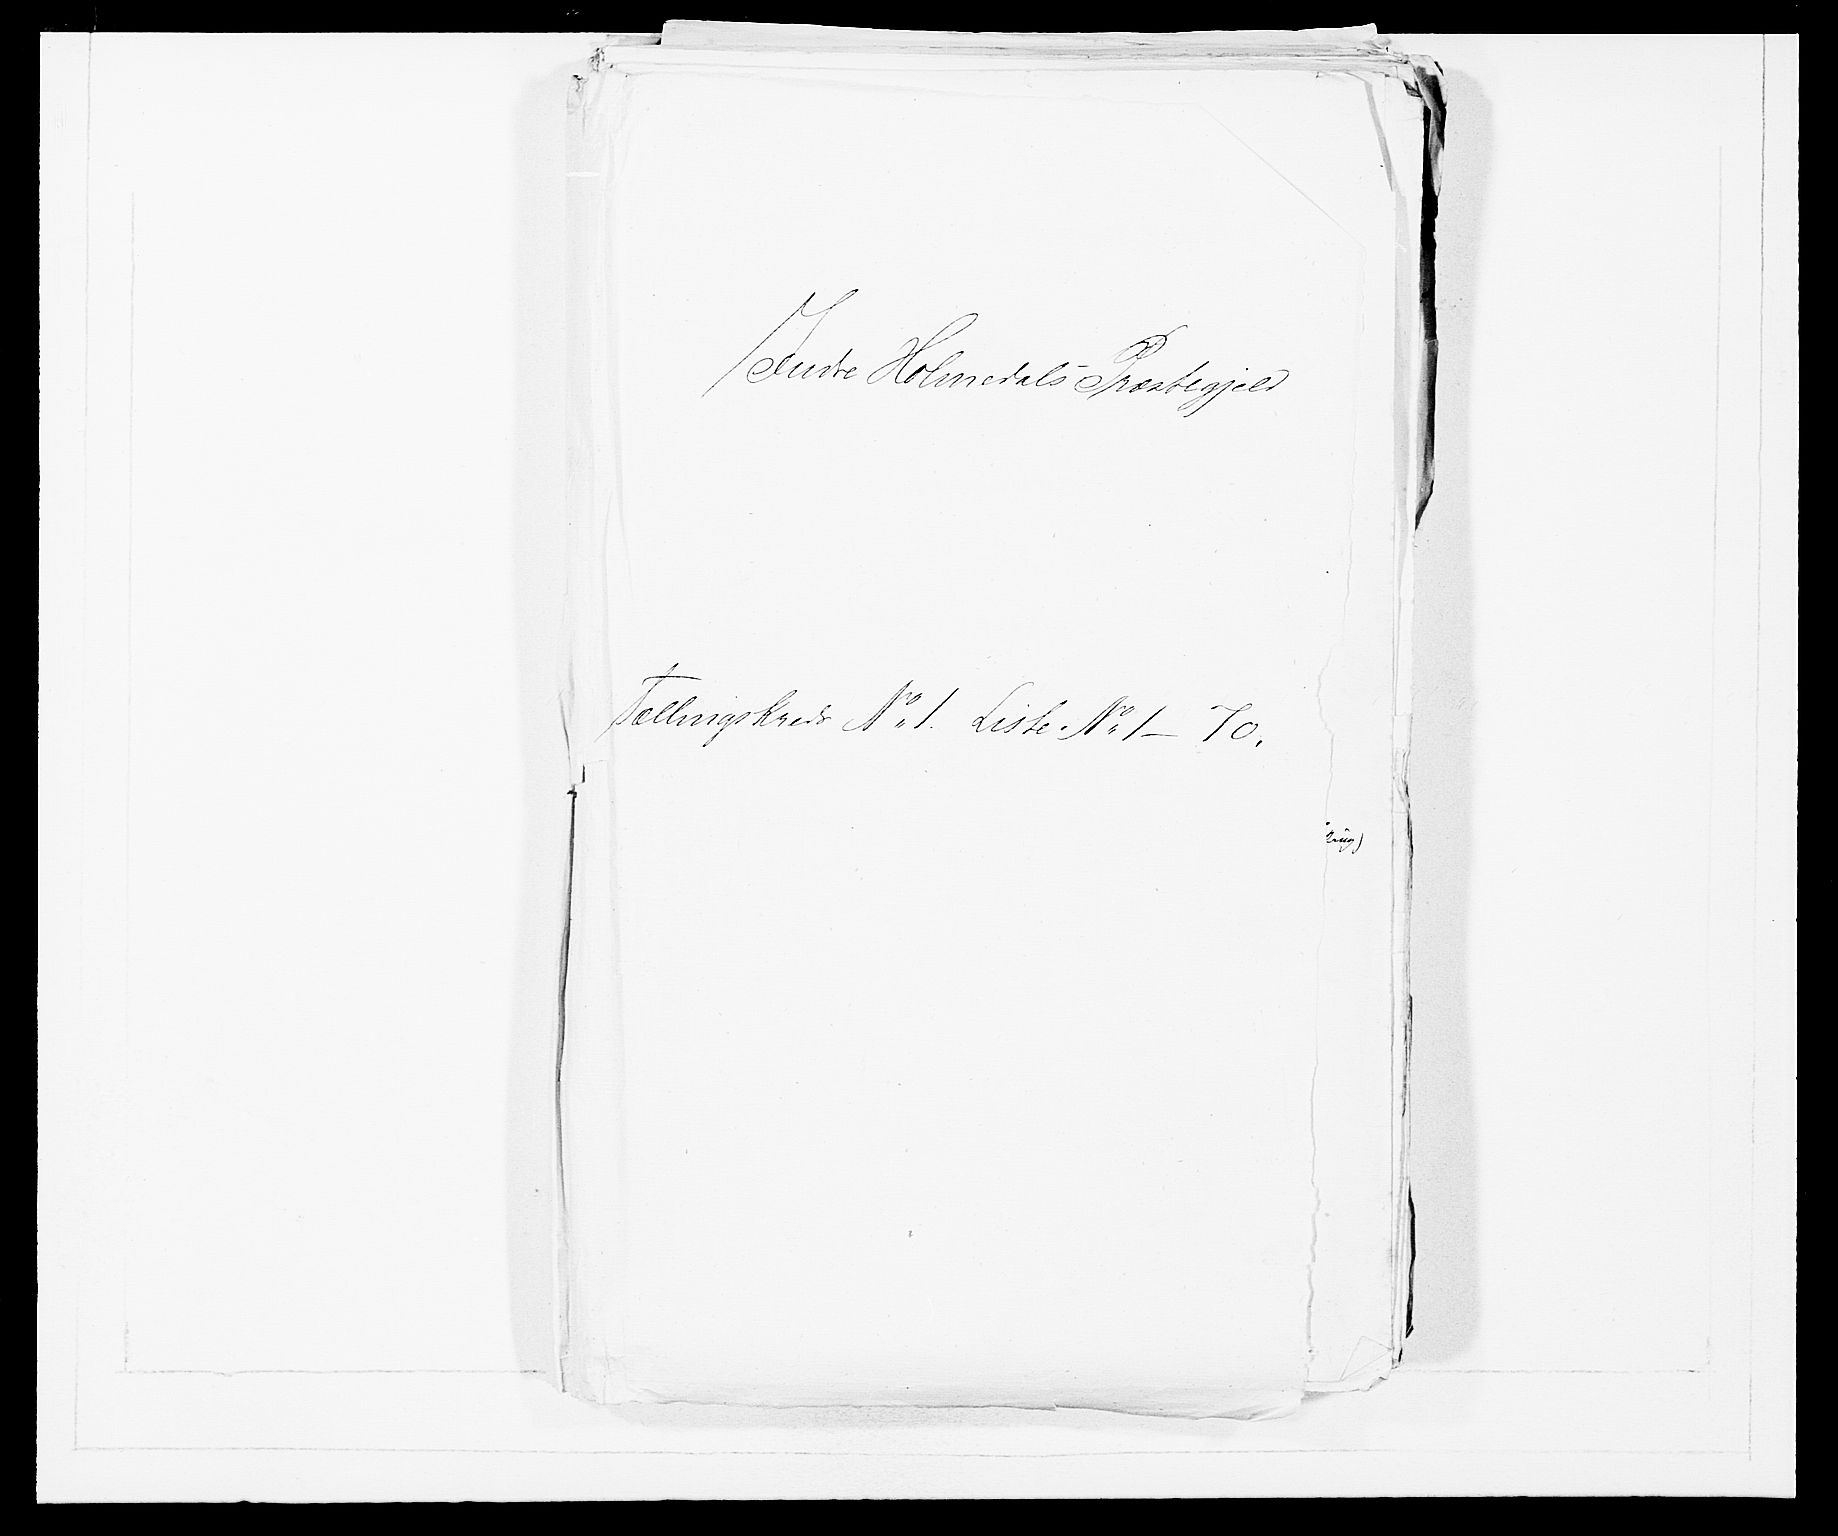 Indre Holmedals Præstegjeld
Tællingskreds No 1. Liste No 1 – 70.